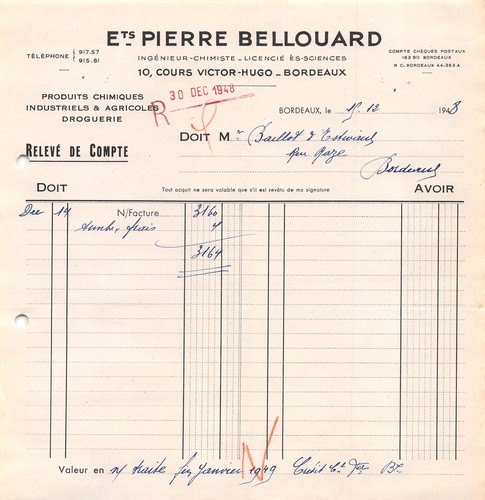 ETS PIERRE BELLOUARD
INGÉNIEUR-CHIMISTE - LICENCIÉ ÈS-SCIENCES
10, COURS VICTOR-HUGO - BORDEAUX
TÉLÉPHONE { 917.57
915.81
COMPTE CHÈQUES POSTAUX
183 90 BORDEAUX
R C. BORDEAUX 44-363 A
PRODUITS CHIMIQUES
INDUSTRIELS & AGRICOLES
DROGUERIE
R 30 DEC 1948
BORDEAUX, le 15.12 1948
DOIT Mr Baillot &
rue
Bordeaux
RELEVÉ DE COMPTE
DOIT
Tout acquit ne sera valable que s'il est revêtu de ma signature
AVOIR
Dec 14 N/Facture 3160
timbre, frais 4
3164
Valeur en n/ traite fin Janvier 1949